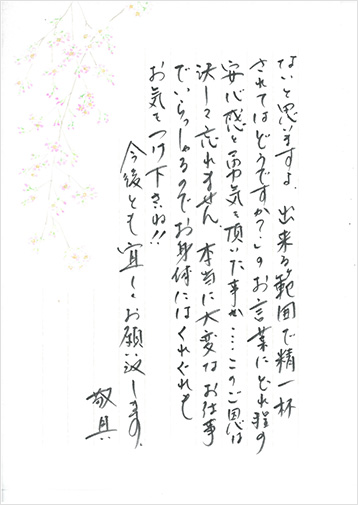 ないと思いますよ。出来る範囲で精一杯
されてはどうですか？」のお言葉にどれ程の
安心感と勇気を頂いた事か‥‥このご恩は
決して忘れません。本当に大変なお仕事
でいらっしゃるのでお身体にはくれぐれも
お気をつけ下さいね!!
今後とも宜しくお願い致します。
敬具